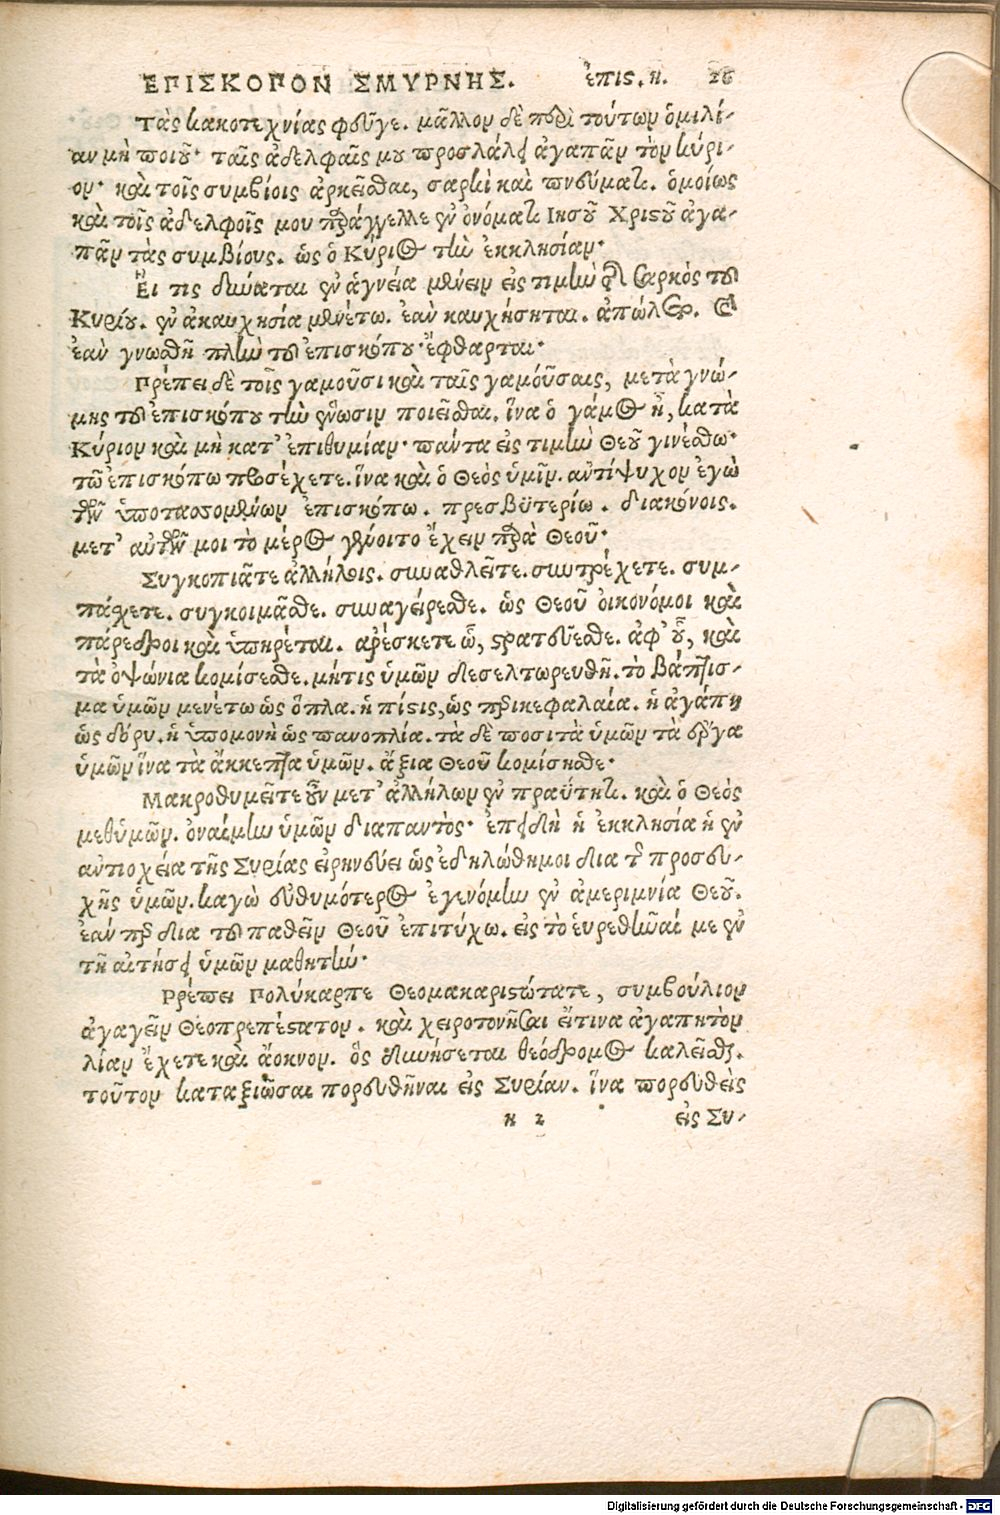 ΕΠΙΣΚΟΠΟΝ ΣΜΥΡΝΗΣ. ἐπις. η. 26
Τὰς κακοτεχνίας φεῦγε. μᾶλλον δὲ περὶ τούτων ὁμιλί-
αν μὴ ποιοῦ· ταῖς ἀδελφαῖς μου προσλάλει ἀγαπᾶν τὸν κύρι-
ον· καὶ τοῖς συμβίοις ἀρκεῖσθαι, σαρκὶ καὶ πνεύματι. ὁμοίως
καὶ τοῖς ἀδελφοῖς μου παράγγελλε ἐν ὀνόματι Ιησοῦ Χριστοῦ ἀγα-
πᾶν τὰς συμβίους. ὡς ὁ Κύριος τὴν ἐκκλησίαν·
Εἴ τις δύναται ἐν ἁγνεία μένειν εἰς τιμὴν τῆς σαρκὸς τοῦ
Κυρίου. ἐν ἀκαυχησία μενέτω. ἐὰν καυχήσηται. ἀπώλετο. καὶ
ἐὰν γνωσθῆ πλὴν τοῦ ἐπισκόπου· ἔφθαρται·
Πρέπει δὲ τοῖς γαμοῦσι καὶ ταῖς γαμούσαις, μετὰ γνώ-
μης τοῦ ἐπισκόπου τὴν γνῶσιν ποιεῖσθαι. ἵνα ὁ γάμος ᾖ, κατὰ
Κύριον καὶ μὴ κατ' ἐπιθυμίαν· πάντα εἰς τιμὴν Θεοῦ γινέσθω·
τῶ ἐπισκόπω προσέχετε. ἵνα καὶ ὁ Θεὸς ὑμῖν. ἀντίψυχον ἐγὼ
τῶν ὑποτασσομένων ἐπισκόπω. πρεσβϋτερίω. διακόνοις.
μετ' αὐτῶν μοι τὸ μέρος γένοιτο ἔχειν παρὰ Θεοῦ·
Συγκοπιᾶτε ἀλλήλοις. συναθλεῖτε. συντρέχετε. συμ-
πάσχετε. συγκοιμᾶσθε. συναγείρεσθε. ὡς Θεοῦ οἰκονόμοι καὶ
πάρεδροι καὶ ὑπηρέται. ἀρέσκετε ὧ, στρατεύεσθε. ἀφ' οὗ, καὶ
τὰ ὀψώνια κομίσεσθε. μήτις ὑμῶν δεσελτωρευθῆ. τὸ βάπτισ-
μα ὑμῶν μενέτω ὡς ὅπλα. ἡ πίστις, ὡς περικεφαλαία. ἡ ἀγάπη
ὡς δόρυ. ἡ ὑπομονὴ ὡς πανοπλία. τὰ δὲ ποσιτὰ ὑμῶν τὰ ἔργα
ὑμῶν ἵνα τὰ ἄκκεπτα ὑμῶν. ἄξια Θεοῦ κομίσησθε·
Μακροθυμεῖτε οὖν μετ' ἀλλήλων ἐν πραΰτητι. καὶ ὁ Θεὸς
μεθ' ὑμῶν. ὀναίμην ὑμῶν διαπαντὸς· ἐπειδὴ ἡ ἐκκλησία ἡ ἐν
ἀντιοχεία τῆς Συρίας εἰρηνεύει ὡς ἐδηλώθημοι δια τῆς προσευ-
χῆς ὑμῶν. καγὼ εὐθυμότερος ἐγενόμην ἐν ἀμεριμνία Θεοῦ.
ἐάν περ δια τοῦ παθεῖν Θεοῦ ἐπιτύχω. εἰς τὸ εὑρεθῆναί με ἐν
τῆ αἰτήσει ὑμῶν μαθητήν·
Πρέπει Πολύκαρπε Θεομακαριστώτατε, συμβούλιον
ἀγαγεῖν Θεοπρεπέστατον. καὶ χειροτονῆσαι εἴτινα ἀγαπητὸν
λίαν ἔχετε καὶ ἄοκνον. ὃς δυνήσεται θεόδρομος καλεῖσθαι.
τοῦτον καταξιῶσαι πορευθῆναι εἰς Συρίαν. ἵνα πορευθεὶς
κ 2 εἰς Συ-
Digitalisierung gefördert durch die Deutsche Forschungsgemeinschaft - DFG